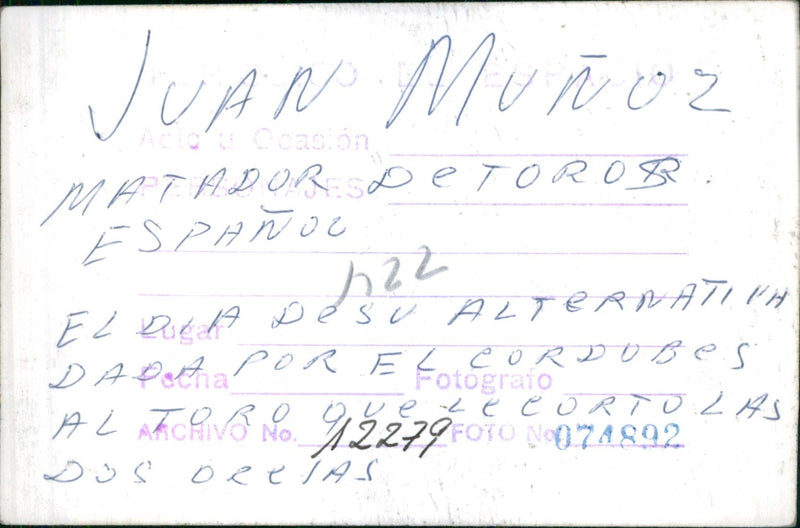 JUAN MUÑOZ
Acto u Ocasión
MATADOR DE TOROS.
PERSONAJES
ESPAÑOL
1122
EL DIA DE SU ALTERNATIVA
Lugar
DADA POR EL CORDOBES
Fecha Fotógrafo
AL TORO QUE LE CORTO LAS
ARCHIVO No. 12279 FOTO No 074892
DOS OREJAS